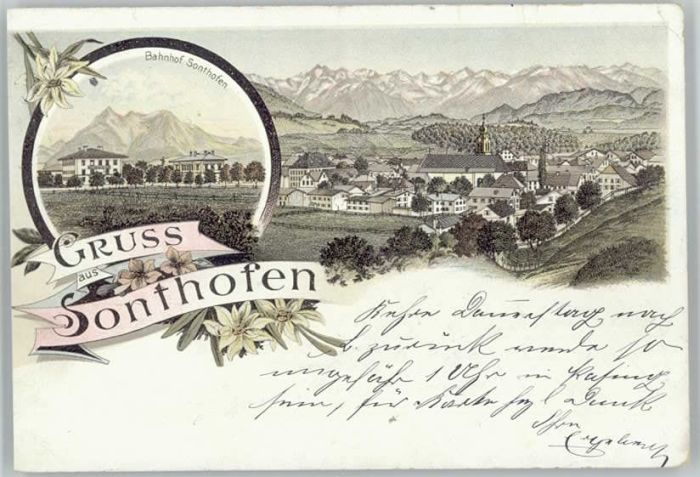 Bahnhof Sonthofen.
GRUSS
aus
Sonthofen
Kehre Donnerstag nach
zurück werde so
ungefähr 1 Uhr in Pasing
sein, für Karte hzl Dank
Ihr